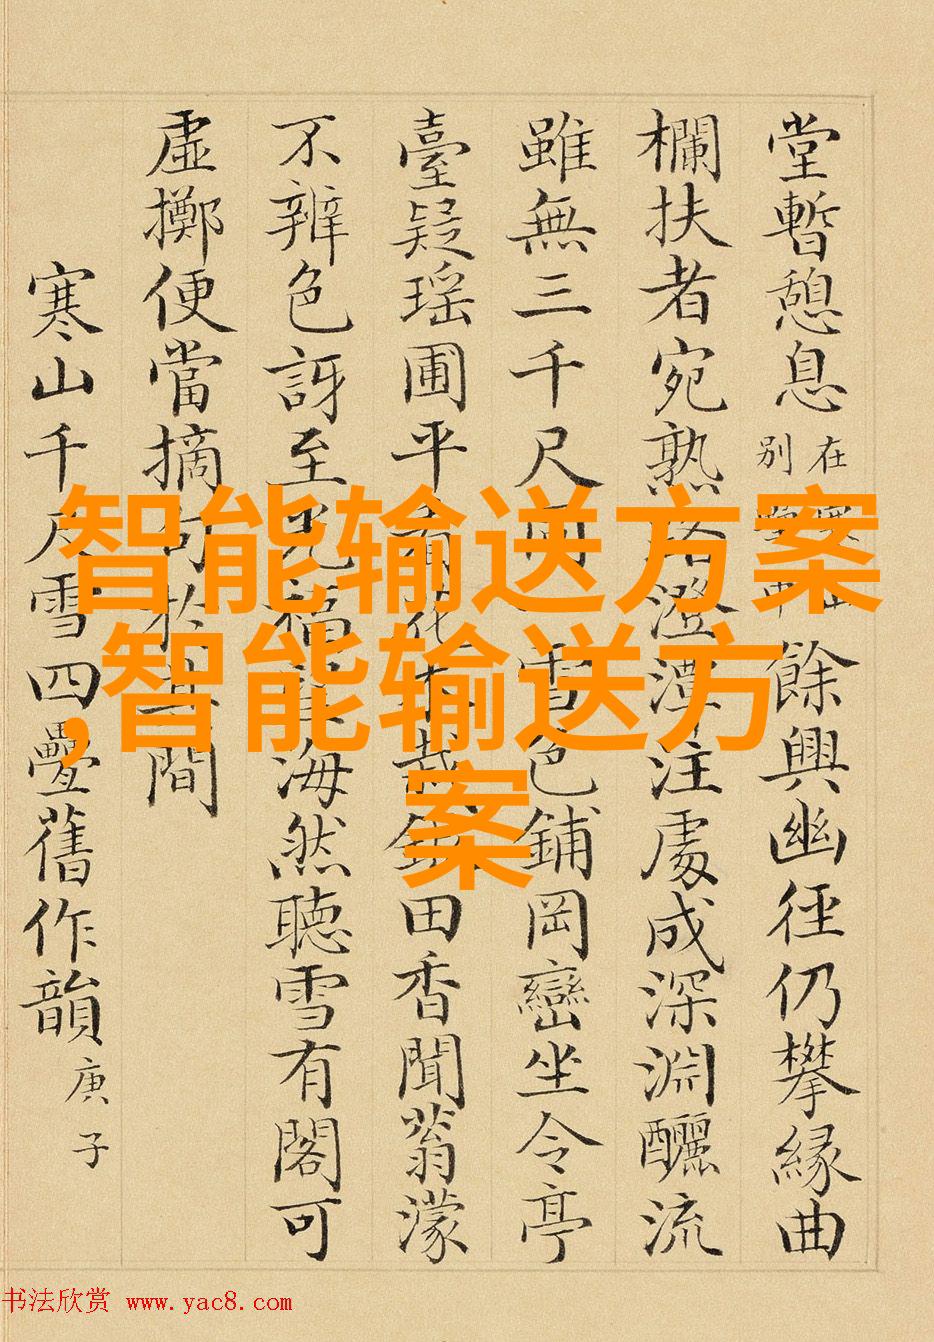 堂暫憩息在別餘興幽徑仍攀緣曲
欄扶者宛熟澄潭注處成深淵釃流
雖無三千尺雪色鋪岡巒坐令亭
臺疑瑶圃平田香聞蓊濛
不辨色訝至海然聽雪有閣可
虛擲便當摘句於其間
寒山千尺雪四疊舊作韻庚子
智能输送方案
,智能输送方
案
书法欣赏 www.yac8.com